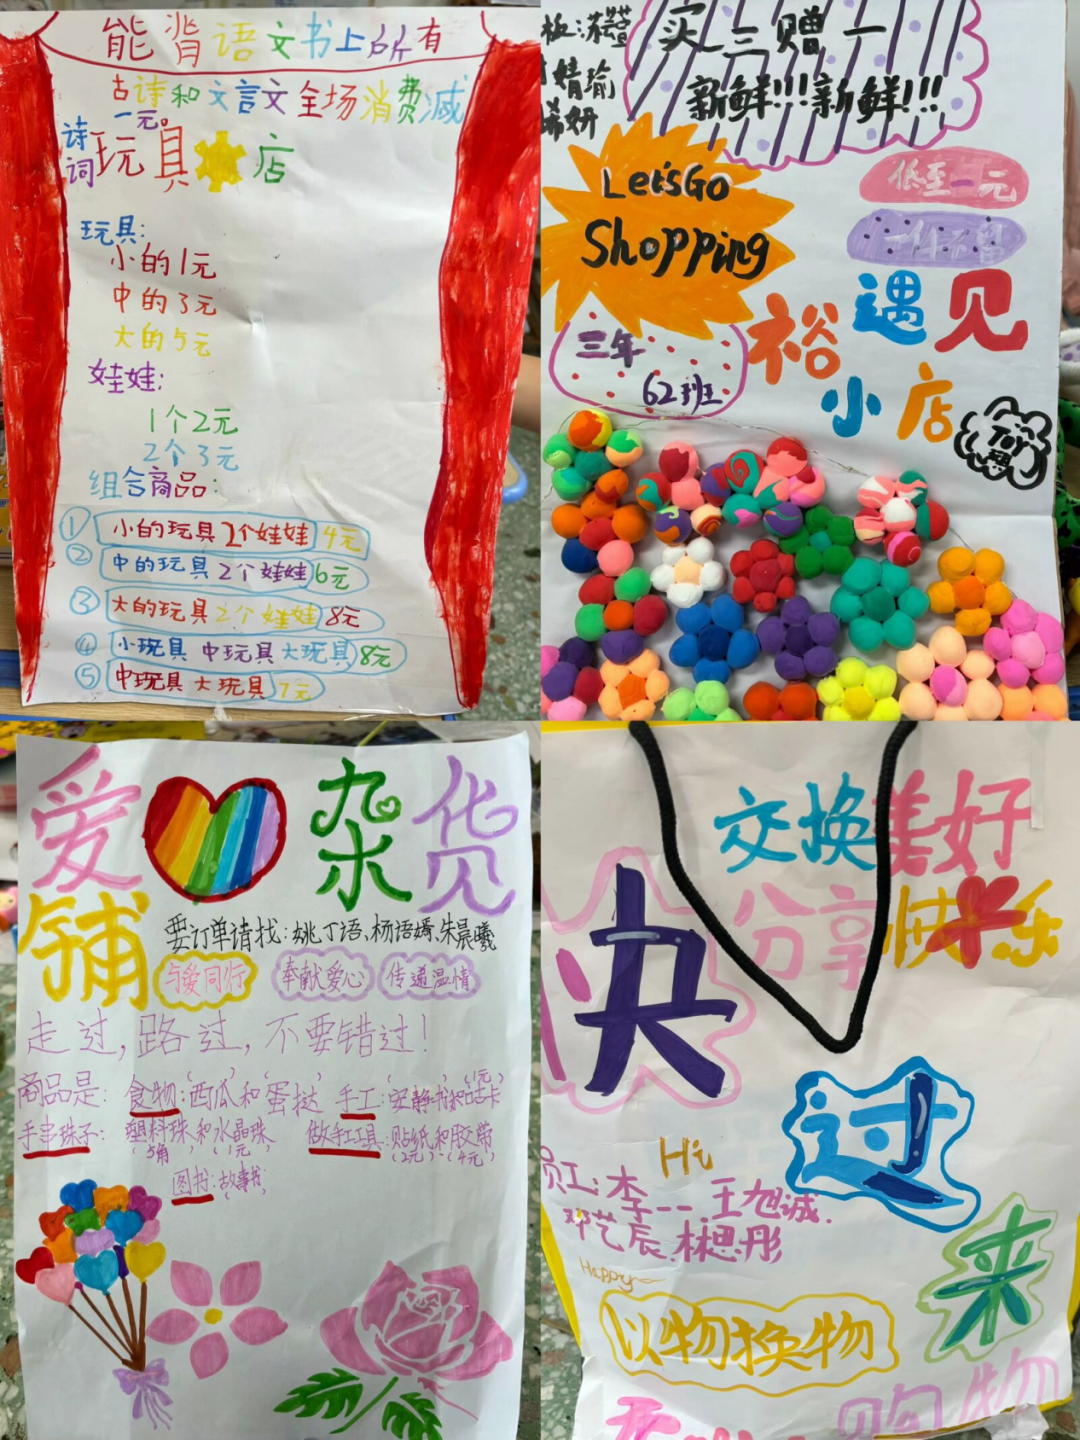 能背语文书上所有
古诗和文言文全场消费减
一元。
诗词玩具店
玩具:
小的1元
中的3元
大的5元
娃娃:
1个2元
2个3元
组合商品:
① 小的玩具2个娃娃4元
② 中的玩具2个娃娃6元
③ 大的玩具2个娃娃8元
④ 小玩具 中玩具 大玩具8元
⑤ 中玩具 大玩具7元
买三赠一
新鲜!!!新鲜!!!
婧瑜
Let's Go
Shopping
低至一元
一件不留
三年
62班
裕遇见
小店
Toy
爱杂货
铺
要订单请找:姚丁语、杨语嫣、朱晨曦
与爱同行
奉献爱心
传递温情
走过,路过,不要错过!
商品是: 食物:西瓜和蛋挞 手工:安静书和咕卡
(1元)
手串珠子: 塑料珠和水晶珠 做手工工具:贴纸和胶带
(5角) (1元) (2元) (4元)
图书:故事书
交换美好
分享快乐
决
过
来
Hi
员工:李一一.王旭诚.
邓艺辰.林思彤
Happy
以物换物
购物